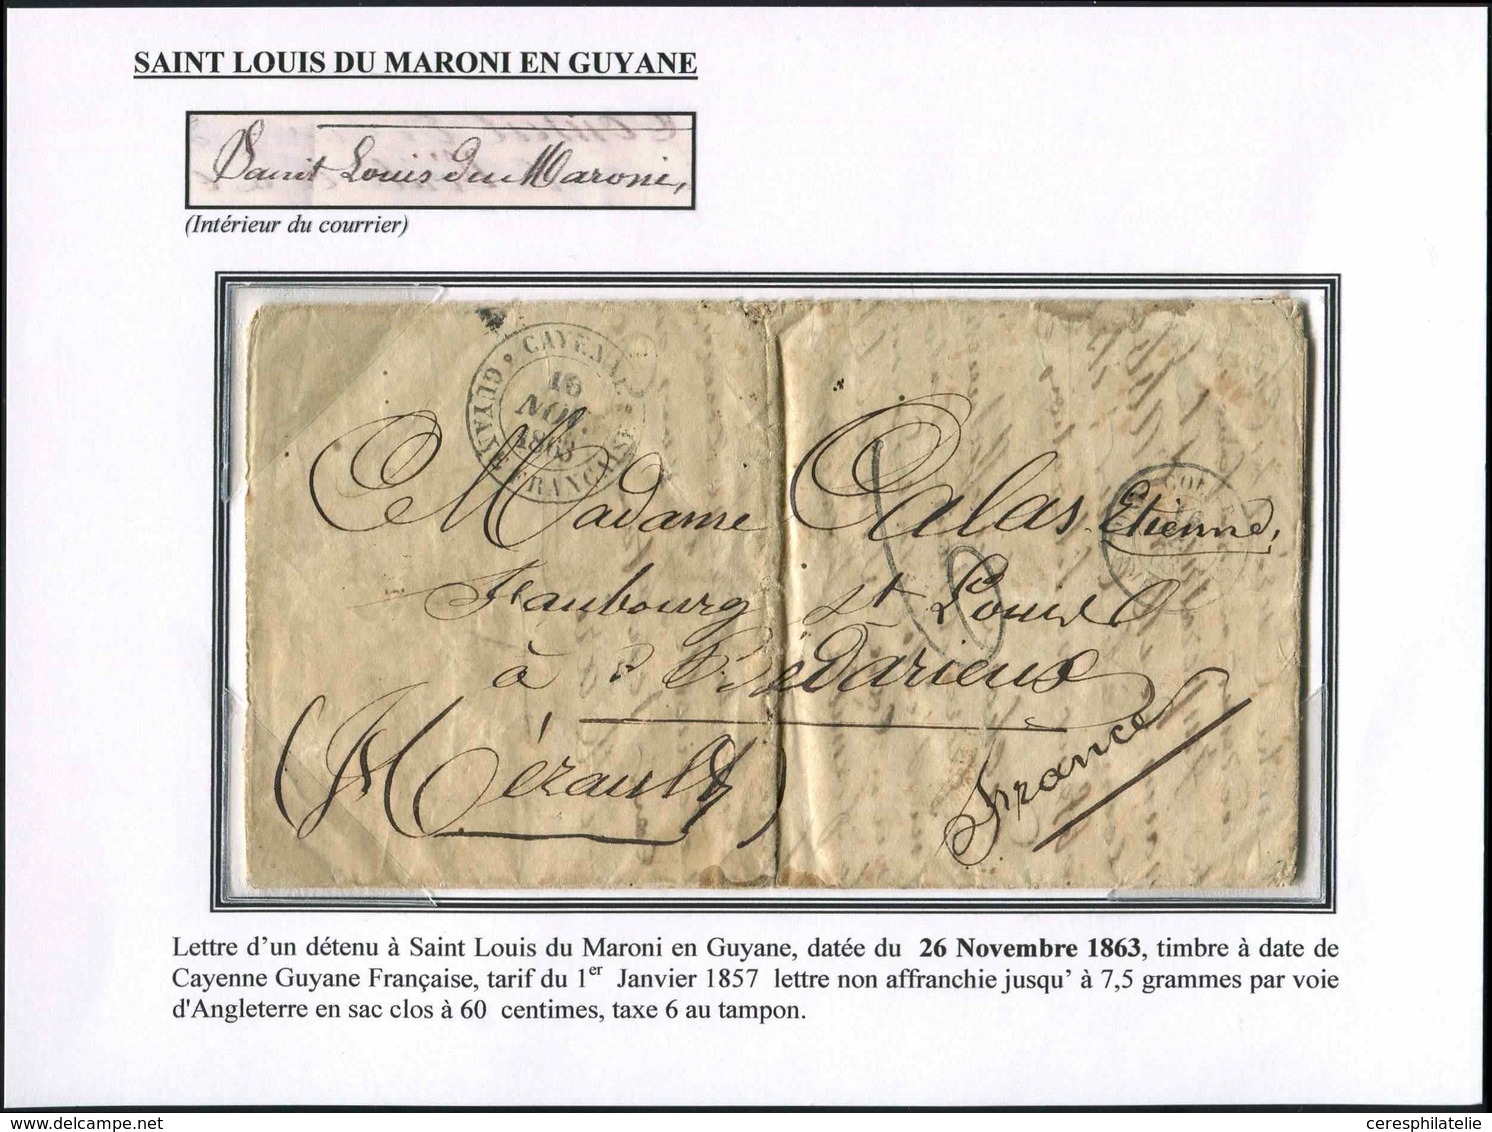 SAINT LOUIS DU MARONI EN GUYANE
Saint Louis du Maroni,
(Intérieur du courrier)
CAYENNE
16
NOV.
1863
GUYANE FRANÇAISE
Madame Calas Etienne,
Faubourg St Louis
à Bédarieux
(Hérault)
France
Lettre d’un détenu à Saint Louis du Maroni en Guyane, datée du 26 Novembre 1863, timbre à date de
Cayenne Guyane Française, tarif du 1er Janvier 1857 lettre non affranchie jusqu’ à 7,5 grammes par voie
d'Angleterre en sac clos à 60 centimes, taxe 6 au tampon.
delcampe.net
ceresphilatelie